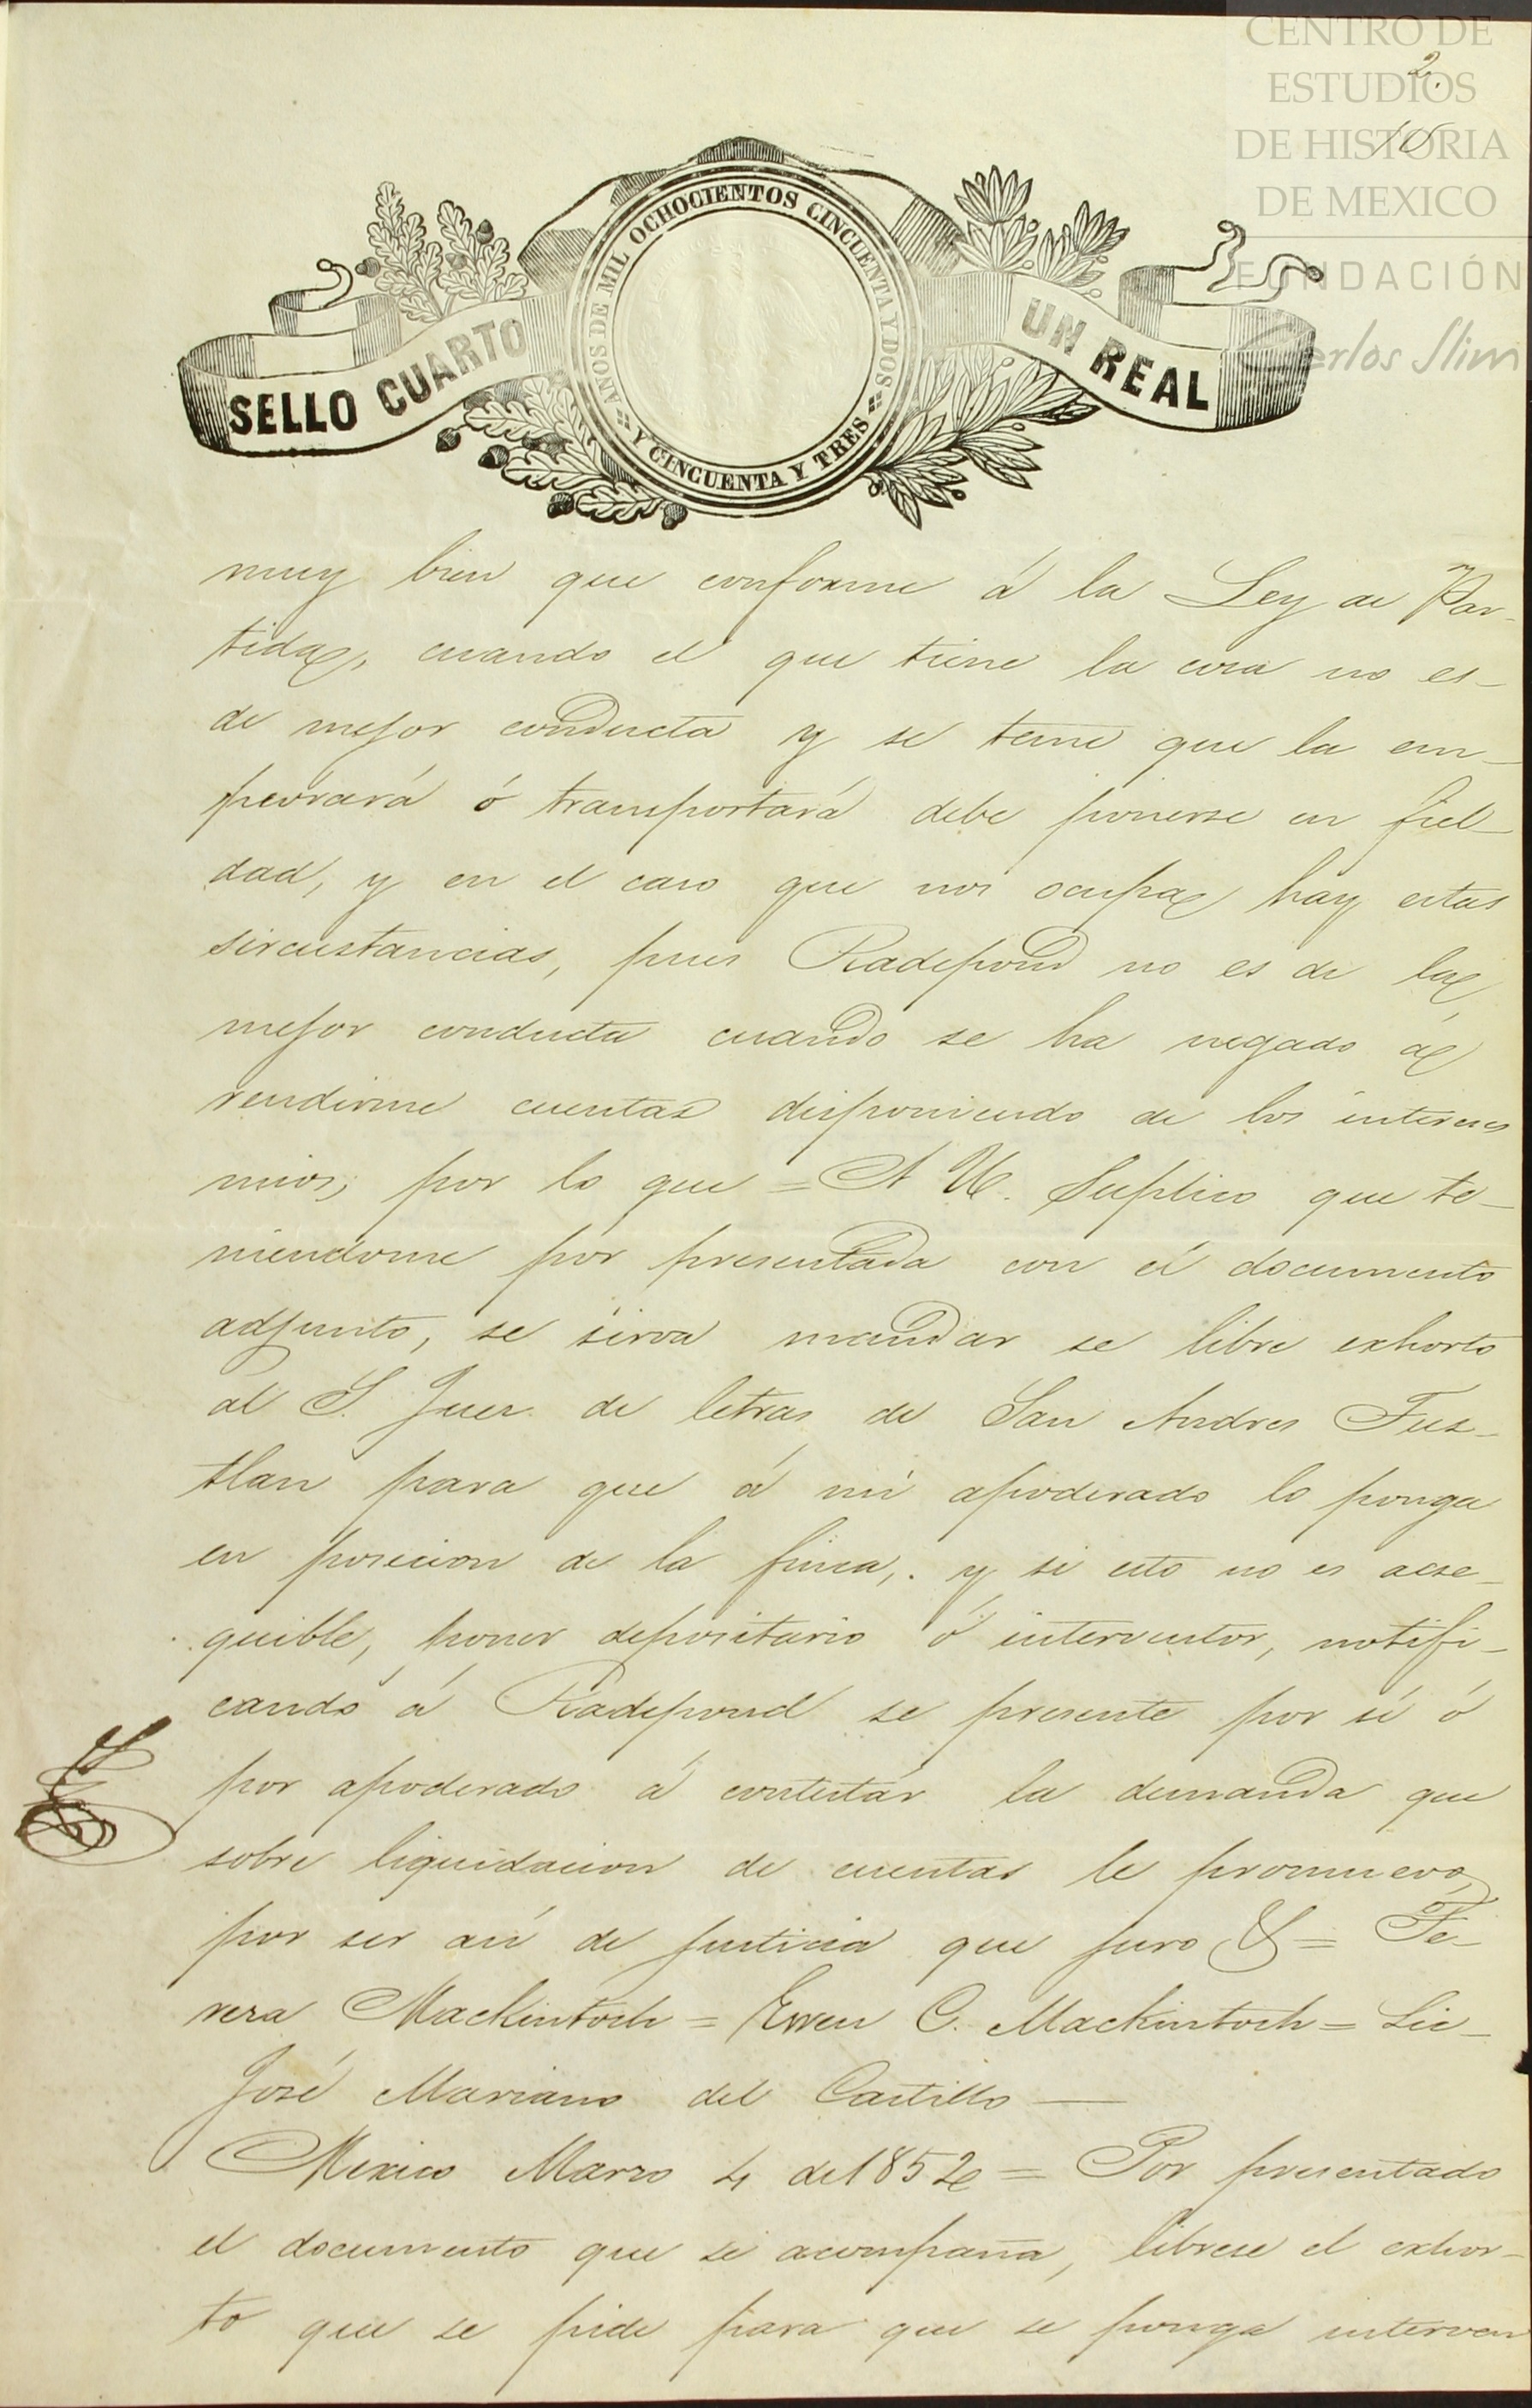 CENTRO DE
ESTUDIOS
DE HISTORIA
DE MEXICO
FUNDACIÓN
Carlos Slim
2.
10
SELLO CUARTO
AÑOS DE MIL OCHOCIENTOS CINCUENTA Y DOS
Y CINCUENTA Y TRES
UN REAL
muy bien que conforme á la Ley de Par-
tida, cuando el que tiene la cosa no es-
de mejor conducta y se teme que la em-
peorará ó transportará debe ponerse en fiel-
dad, y en el caso que nos ocupa hay estas
sircustancias, pues Radepond no es de la
mejor conducta cuando se ha negado á
rendirme cuentas disponiendo de los intereses
mios; por lo que = A U. Suplico que te-
niendome por presentada con el documento
adjunto, se sirva mandar se libre exhorto
al S. Juez de letras de San Andres Tus-
tlan para que á mi apoderado lo ponga
en posicion de la finca, y si esto no es acse-
quible, poner depositario ó interventor, notifi-
cando á Radepond se presente por sí ó
por apoderado á contestar la demanda que
sobre liquidacion de cuentas le promuevo,
por ser así de justicia que juro & = Te-
resa Mackintosh = Ewen C. Mackintosh = Lic-
José Mariano del Castillo —
Mexico Marzo 4 de 1852 = Por presentado
el documento que se acompaña, librese el exhor-
to que se pide para que se ponga interven